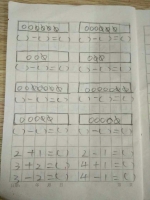 ( ) - ( ) = ( ) ( ) - ( ) = ( )
( ) - ( ) = ( ) ( ) - ( ) = ( )
( ) - ( ) = ( ) ( ) - ( ) = ( )
( ) - ( ) = ( ) ( ) - ( ) = ( )
2 + 1 = ( ) 2 - 1 = ( )
3 + 2 = ( ) 4 + 1 = ( )
3 - 2 = ( ) 4 - 1 = ( )